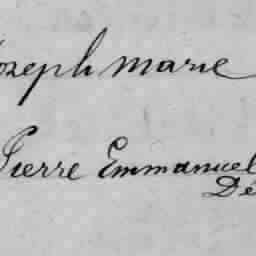 Joseph Marie
Pierre Emmanuel
Dé